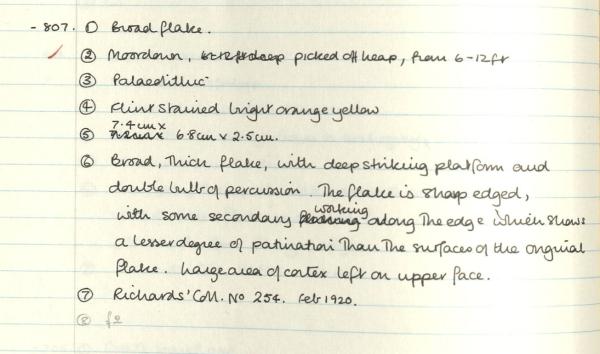 - 807. ① Broad flake.
② Moordown, picked off heap, from 6-12ft
③ Palaeolithic
④ Flint stained bright orange yellow
7.4cm x
⑤ 6.8cm x 2.5cm.
⑥ Broad, thick flake, with deep striking platform and
double bulb of percussion. The flake is sharp edged,
working
with some secondary along the edge which shows
a lesser degree of patination than the surfaces of the original
flake. Large area of cortex left on upper face.
⑦ Richards' Coll. No 254. Feb 1920.
⑧ f2